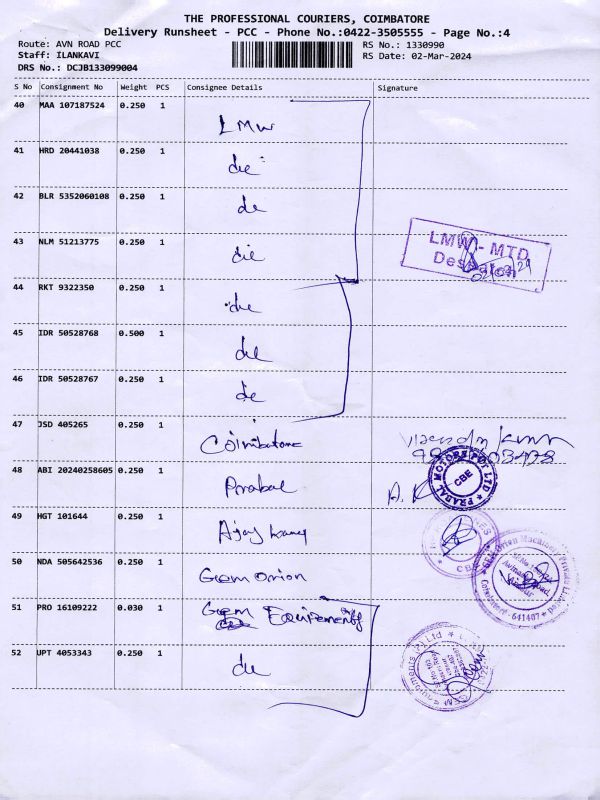 THE PROFESSIONAL COURIERS, COIMBATORE
Delivery Runsheet - PCC - Phone No.:0422-3505555 - Page No.:4
Route: AVN ROAD PCC
RS No.: 1330990
Staff: ILANKAVI
RS Date: 02-Mar-2024
DRS No.: DCJB133099004
S No Consignment No Weight PCS Consignee Details Signature
40 MAA 107187524 0.250 1
LMW
41 HRD 20441038 0.250 1
42 BLR 5352060108 0.250 1
43 NLM 51213775 0.250 1
LMW - MTD
44 RKT 9322350 0.250 1
45 IDR 50528768 0.500 1
46 IDR 50528767 0.250 1
47 JSD 405265 0.250 1
Coimbatore
48 ABI 20240258605 0.250 1
Prabal
PRABAL MOTORS PVT LTD
CBE
49 HGT 101644 0.250 1
Ajay
50 NDA 505642536 0.250 1
Gem Orion
Gem Orion Machinery Private Limited
Coimbatore - 641407
51 PRO 16109222 0.030 1
Gem Equipments
52 UPT 4053343 0.250 1